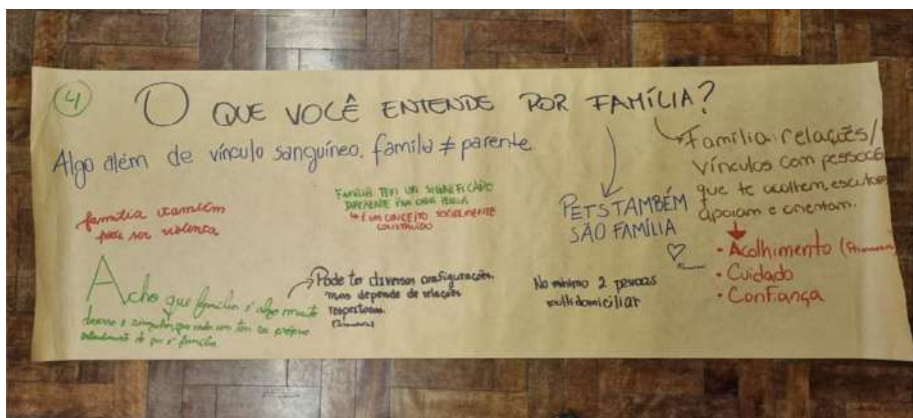 4
O QUE VOCÊ ENTENDE POR FAMÍLIA?
Algo além de vínculo sanguíneo. família ≠ parente.
família também
pode ser violenta
FAMÍLIA TEM UM SIGNIFICADO
DIFERENTE PARA CADA PESSOA
↳ É UM CONCEITO SOCIALMENTE
CONSTRUÍDO
PETS TAMBÉM
SÃO FAMÍLIA
Família: relações/
vínculos com pessoas
que te acolhem, escutam,
apoiam e orientam.
• Acolhimento
• Cuidado
• Confiança
Acho que família é algo muito
diverso e singular, que cada um tem seu próprio
entendimento do que é família
Pode ter diversas configurações,
mas depende de relações
respeitosas.
No mínimo 2 pessoas
multidomiciliar